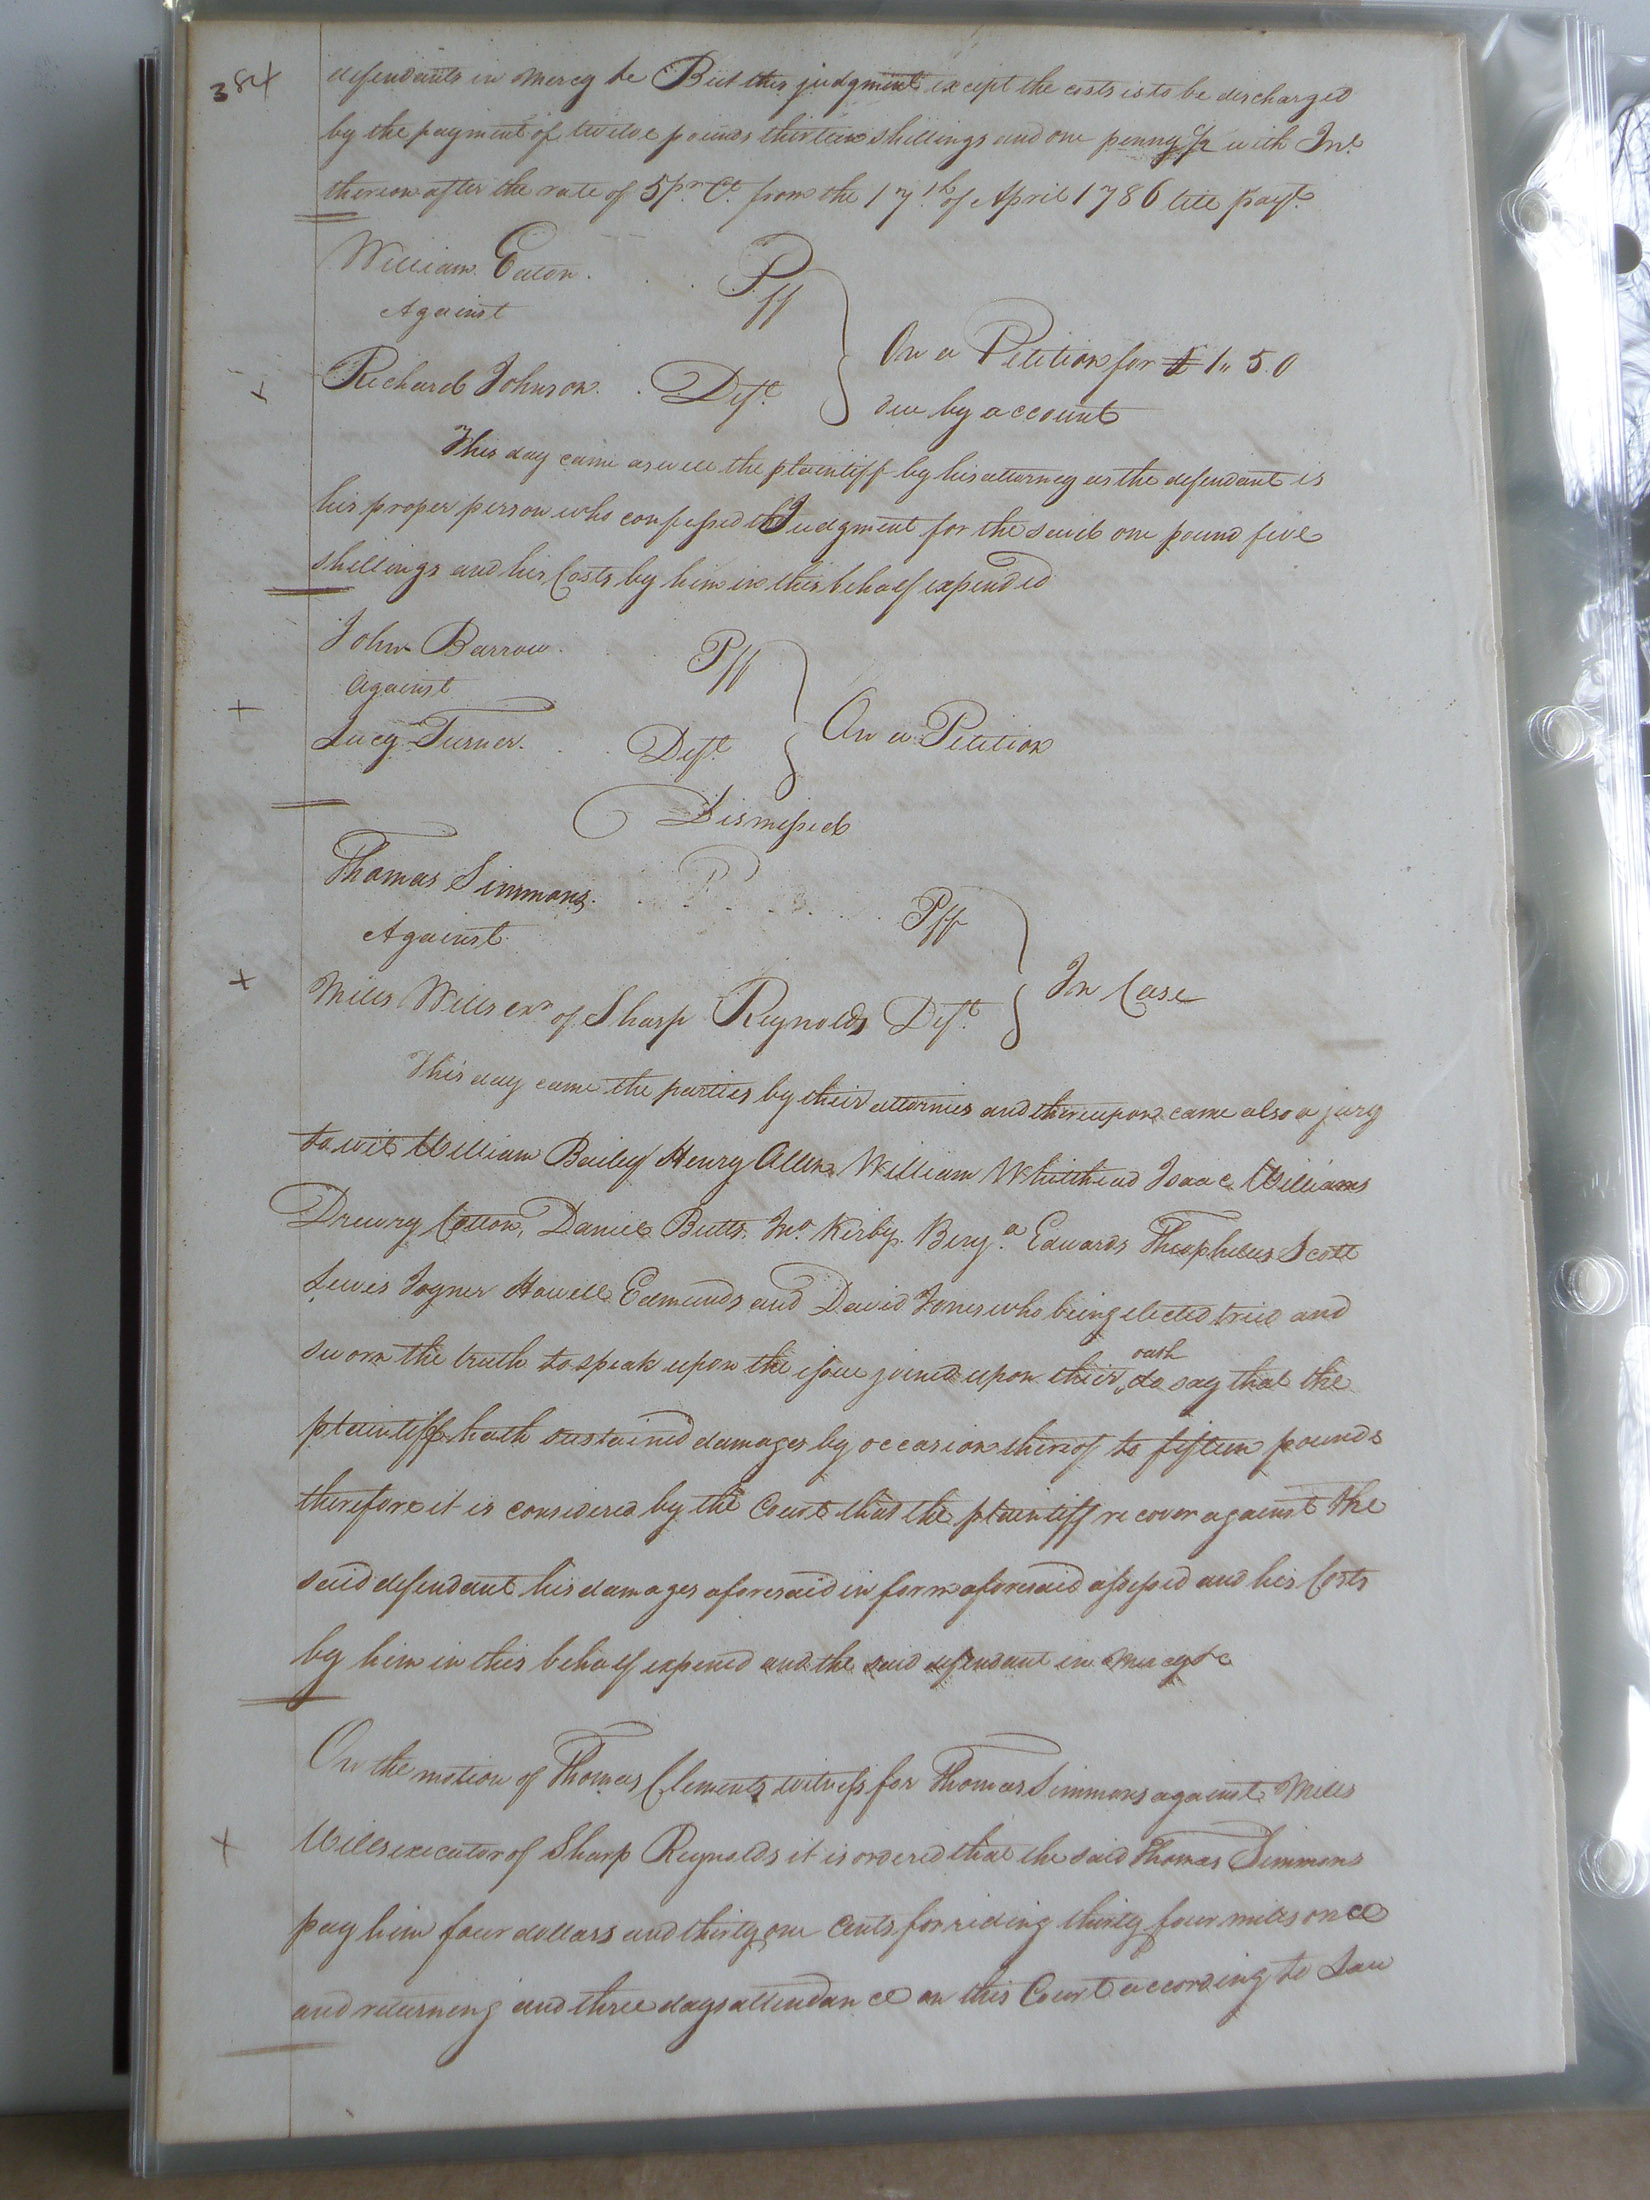 384
defendants in mercy &c But this judgment except the costs is to be discharged
by the payment of twelve pounds thirteen shillings and one penny ½ with Int
thereon after the rate of 5 pr Ct. from the 17th of April 1786 till payt.
William Eaton . . . Pff
Against
On a Petition for £ 1,, 5. 0
Richard Johnson . . Deft.
due by account
This day came as well the plaintiff by his attorney as the defendant is
his proper person who confessed the Judgment for the said one pound five
shillings and his Costs by him in this behalf expended
John Barrow . . . Pff
Against
Lucy Turner . . . Deft
On a Petition
Dismissed
Thomas Simmons . . . Pff
Against
In Case
Mills Wills exr of Sharp Reynolds Deft.
This day came the parties by their attornies and thereupon came also a jury
to wit William Bailey Henry Allen William Whitehead Isaac Williams
Drewry Cotton, Daniel Butts, Jno. Kirby. Benja. Edwards Theophelus Scott
Lewis Joyner Howell Edmunds and David Jones who being elected tried and
sworn the truth to speak upon the issue joined upon their oath do say that the
plaintiff hath sustained damages by occasion thereof to fifteen pounds
therefore it is considered by the Court that the plaintiff recover against the
said defendant his damages aforesaid in form aforesaid assessed and his Costs
by him in this behalf expened and the said defendant in mercy &c
On the motion of Thomas Clements witness for Thomas Simmons against Mills
Wills executor of Sharp Reynolds it is ordered that the said Thomas Simmons
pay him four dollars and thirty one Cents for riding thirty four miles once
and returning and three days attendance on this Court according to Law